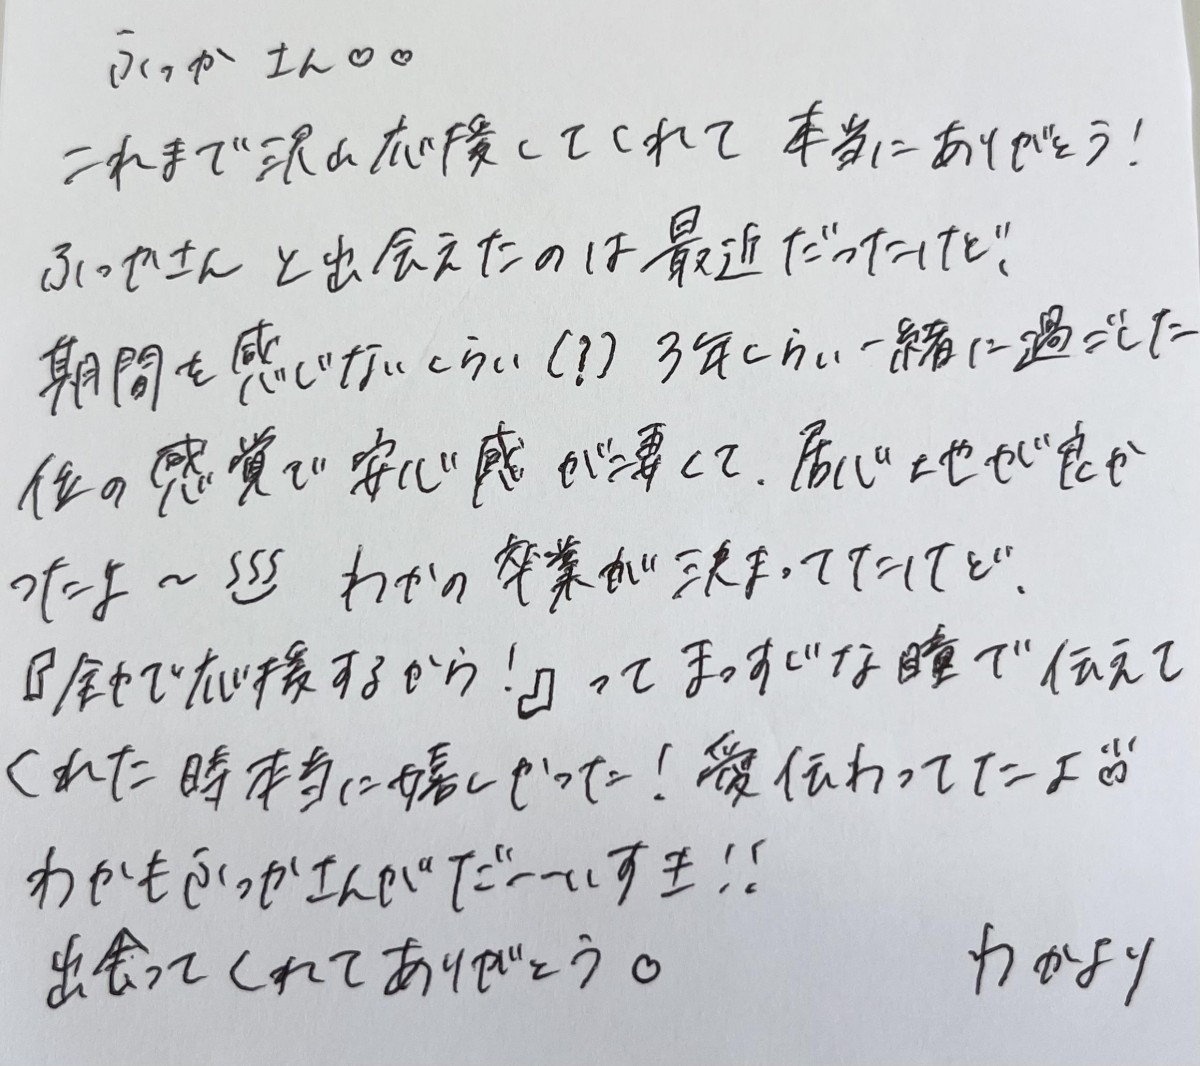 ふっかさん♡♡
これまで沢山応援してくれて本当にありがとう!
ふっかさんと出会えたのは最近だったけど、
期間を感じないくらい(?)3年くらい一緒に過ごした
位の感覚で安心感が凄くて、居心地が良か
ったよ〜 わかの卒業が決まってたけど、
『全力で応援するから!』ってまっすぐな瞳で伝えて
くれた時本当に嬉しかった!愛伝わってたよ
わかもふっかさんがだーーいすき!!
出会ってくれてありがとう。
わかより